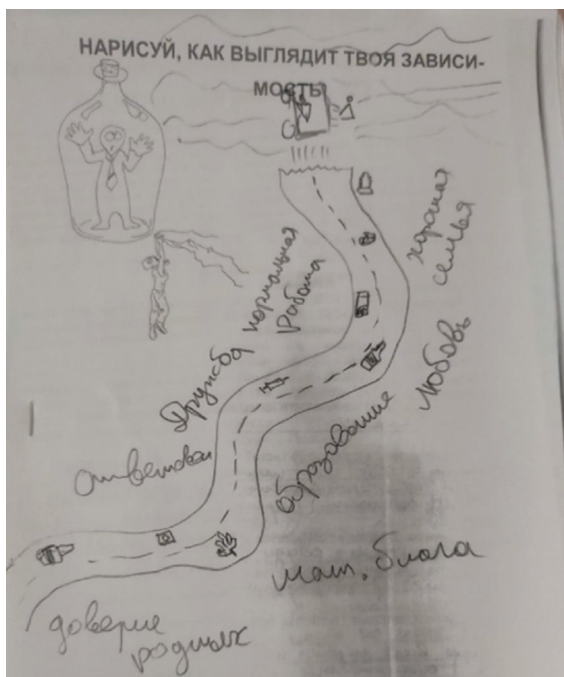 НАРИСУЙ, КАК ВЫГЛЯДИТ ТВОЯ ЗАВИСИ-
МОСТЬ
хорошая
семья
нормальная
работа
Дружба
Любовь
образование
мат. блага
доверие
родных